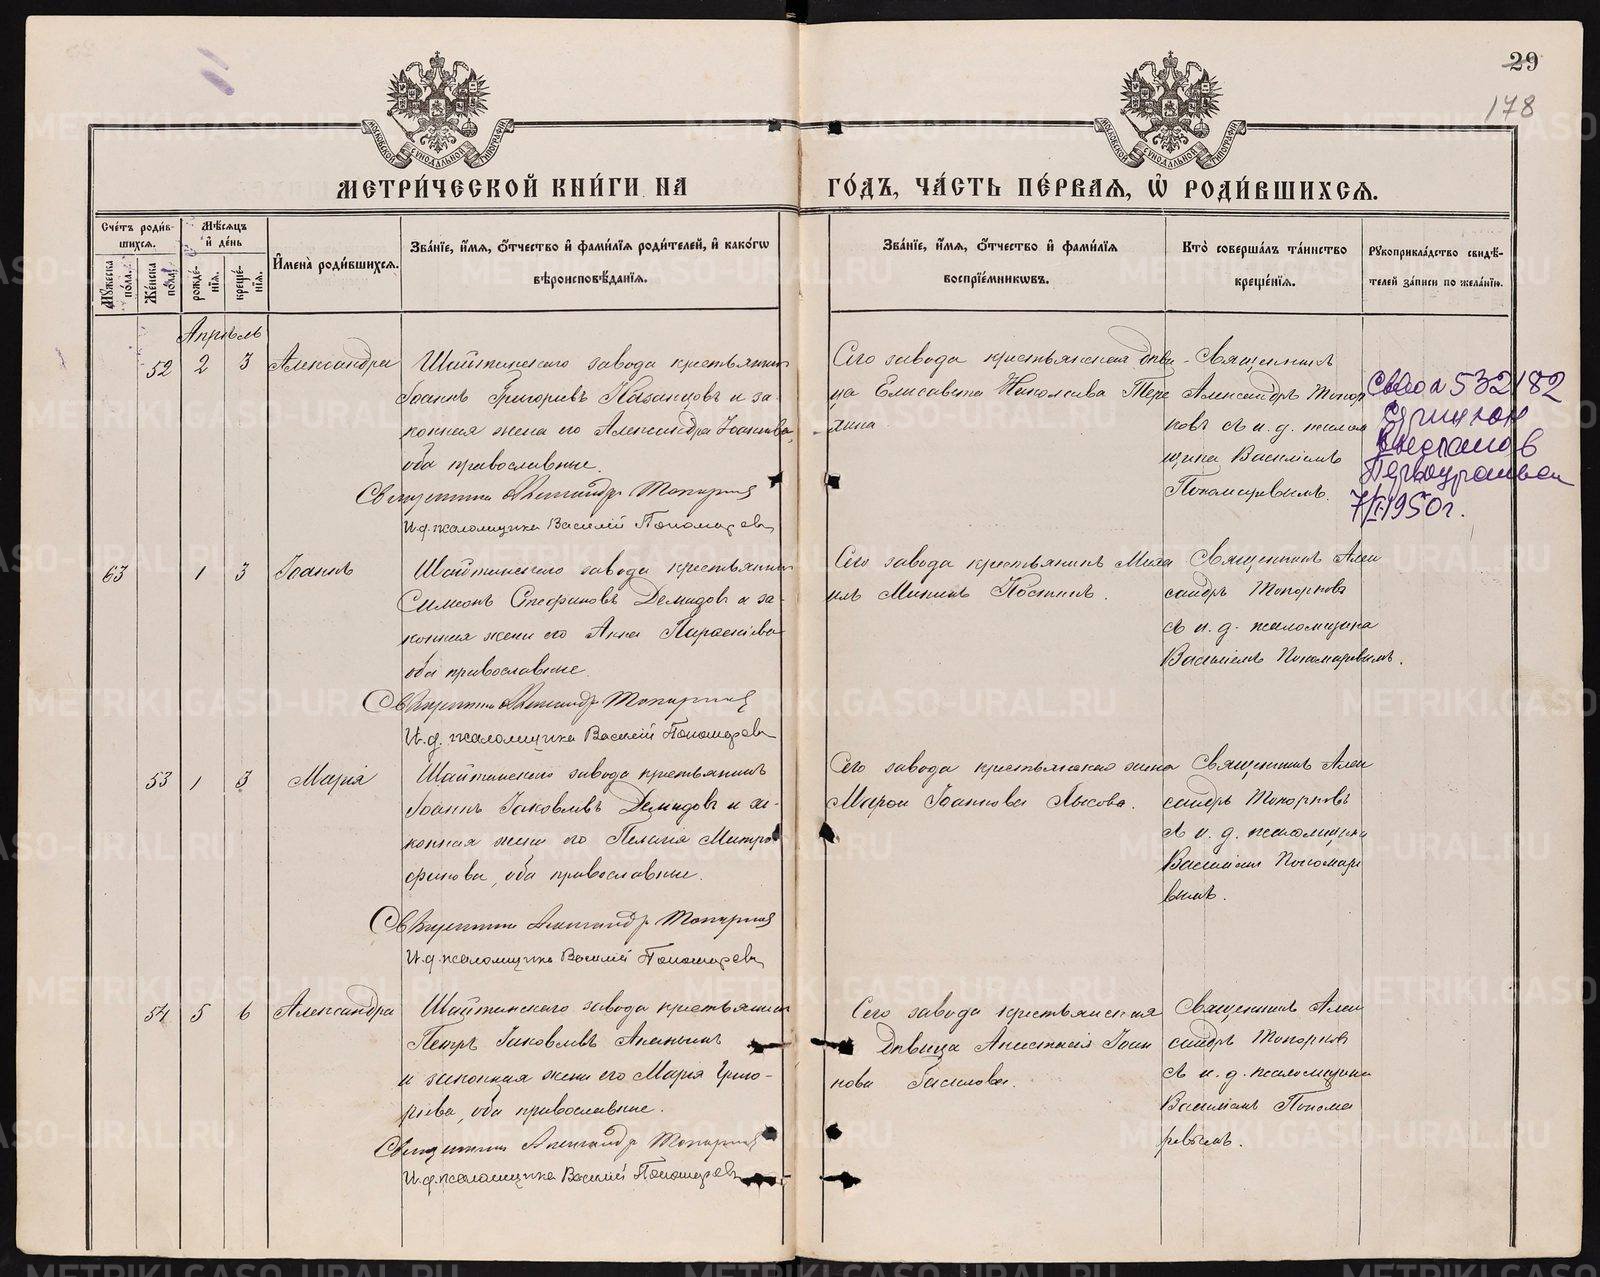 29
178
МОСКОВСКОЙ СѴНОДАЛЬНОЙ ТИПОГРАФІИ
МОСКОВСКОЙ СѴНОДАЛЬНОЙ ТИПОГРАФІИ
МЕТРИ́ЧЕСКОЙ КНИ́ГИ НА
ГО́ДЪ, ЧА́СТЬ ПЕ́РВАѦ, Ѡ҆ РОДИ́ВШИХСѦ.
Сче́тъ роди́в-
шихсѧ.
Мꙋ́жеска по́ла.
Же́нска по́ла.
Мѣ́сѧцъ
и҆ де́нь
рожде́-
нїѧ.
креще́-
нїѧ.
И҆мена̀ роди́вшихсѧ.
Зва́нїе, и҆́мѧ, ѻ҆́тчество и҆ фами́лїѧ роди́телей, и҆ како́гѡ
вѣроисповѣ́данїѧ.
Зва́нїе, и҆́мѧ, ѻ҆́тчество и҆ фами́лїѧ
воспрїе́мникѡвъ.
Кто̀ соверша́лъ та́инство
креще́нїѧ.
Рꙋкоприкла́дство свидѣ́-
телей за́писи по жела́нїю.
Апрѣль
52 2 3 Александра
Шайтинскаго завода крестьянин
Іоаннъ Григоріевъ Казанцовъ и за-
конная жена его Александра Іоаннова,
оба православные.
Священникъ Александръ Топорков
И.д. псаломщика Василій Пономарев
Сего завода крестьянская дѣви-
ца Елисавета Николаева Тере
хина
Священникъ
Александръ Топор
ковъ съ и. д. псалом
щика Василіемъ
Пономаревымъ.
532182
7/I 1950г.
63 1 3 Іоаннъ
Шайтинскаго завода крестьянин
Симеонъ Стефановъ Демидовъ и за-
конная жена его Анна
оба православные.
Священникъ Александръ Топорков
И.д. псаломщика Василій Пономарев
Сего завода крестьянинъ Миха
илъ Постинъ.
Священникъ Алек
сандръ Топорковъ
съ и. д. псаломщика
Василіемъ Пономаревымъ.
53 1 3 Марія
Шайтинскаго завода крестьянинъ
Іоаннъ Іаковлевъ Демидовъ и за-
конная жена его Пелагія Митро
фанова, оба православные.
Священникъ Александръ Топорков
И.д. псаломщика Василій Пономарев
Сего завода крестьянская жена
Іоаннова Лысова.
Священникъ Алек
сандръ Топорковъ
съ и. д. псаломщика
Василіемъ Пономаре
вымъ.
54 5 6 Александра
Шайтинскаго завода крестьянин
Петръ Іаковлевъ Ананьинъ
и законная жена его Марія Григо-
рьева, оба православные.
Священникъ Александръ Топорков
И.д. псаломщика Василій Пономарев
Сего завода крестьянская
дѣвица Анастасія Іоан
нова
Священникъ Алек
сандръ Топорков
съ и. д. псаломщика
Василіемъ Понома
ревымъ.
METRIKI.GASO-URAL.RU